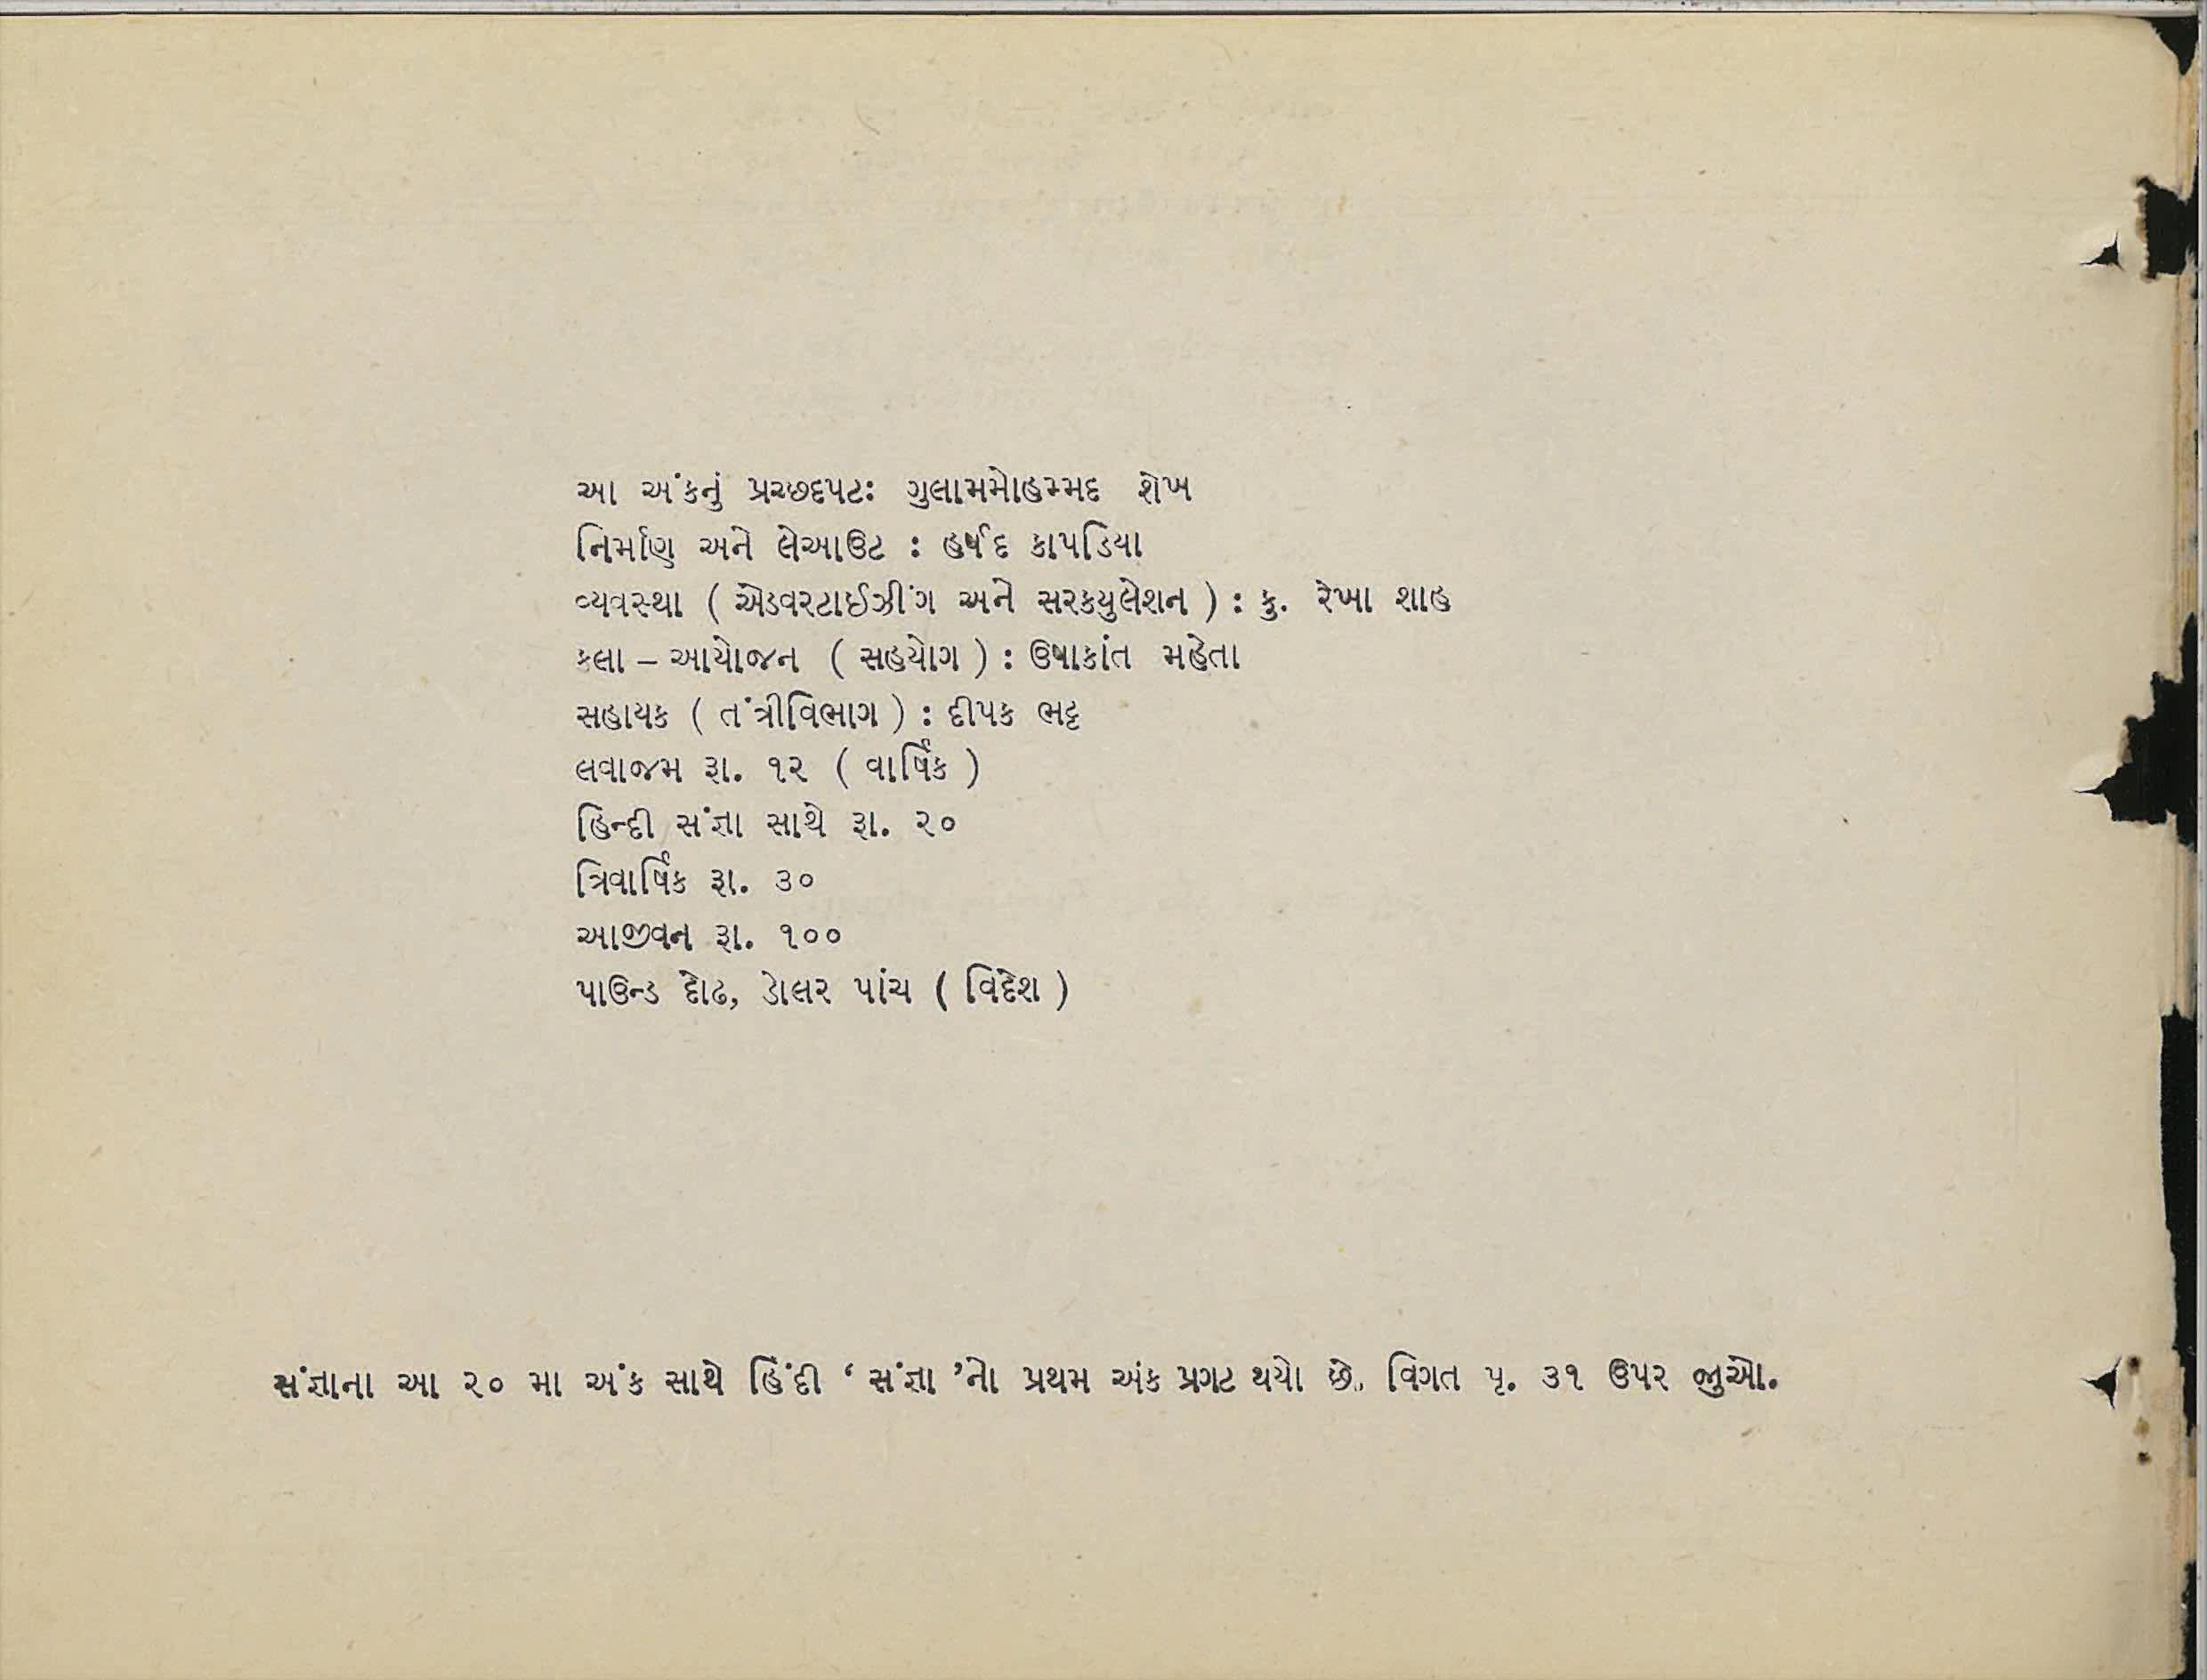 આ અંકનું પ્રચ્છદપટઃ ગુલામમોહમ્મદ શેખ
નિર્માણ અને લેઆઉટ : હર્ષદ કાપડિયા
વ્યવસ્થા ( એડવરટાઈઝીંગ અને સરક્યુલેશન ) : કુ. રેખા શાહ
કલા – આયોજન ( સહયોગ ) : ઉષાકાંત મહેતા
સહાયક ( તંત્રીવિભાગ ) : દીપક ભટ્ટ
લવાજમ રૂા. ૧૨ ( વાર્ષિક )
હિન્દી સંજ્ઞા સાથે રૂા. ૨૦
ત્રિવાર્ષિક રૂા. ૩૦
આજીવન રૂા. ૧૦૦
પાઉન્ડ દોઢ, ડોલર પાંચ ( વિદેશ )
સંજ્ઞાના આ ૨૦ મા અંક સાથે હિંદી ‘ સંજ્ઞા ’નો પ્રથમ અંક પ્રગટ થયો છે. વિગત પૃ. ૩૧ ઉપર જુઓ.